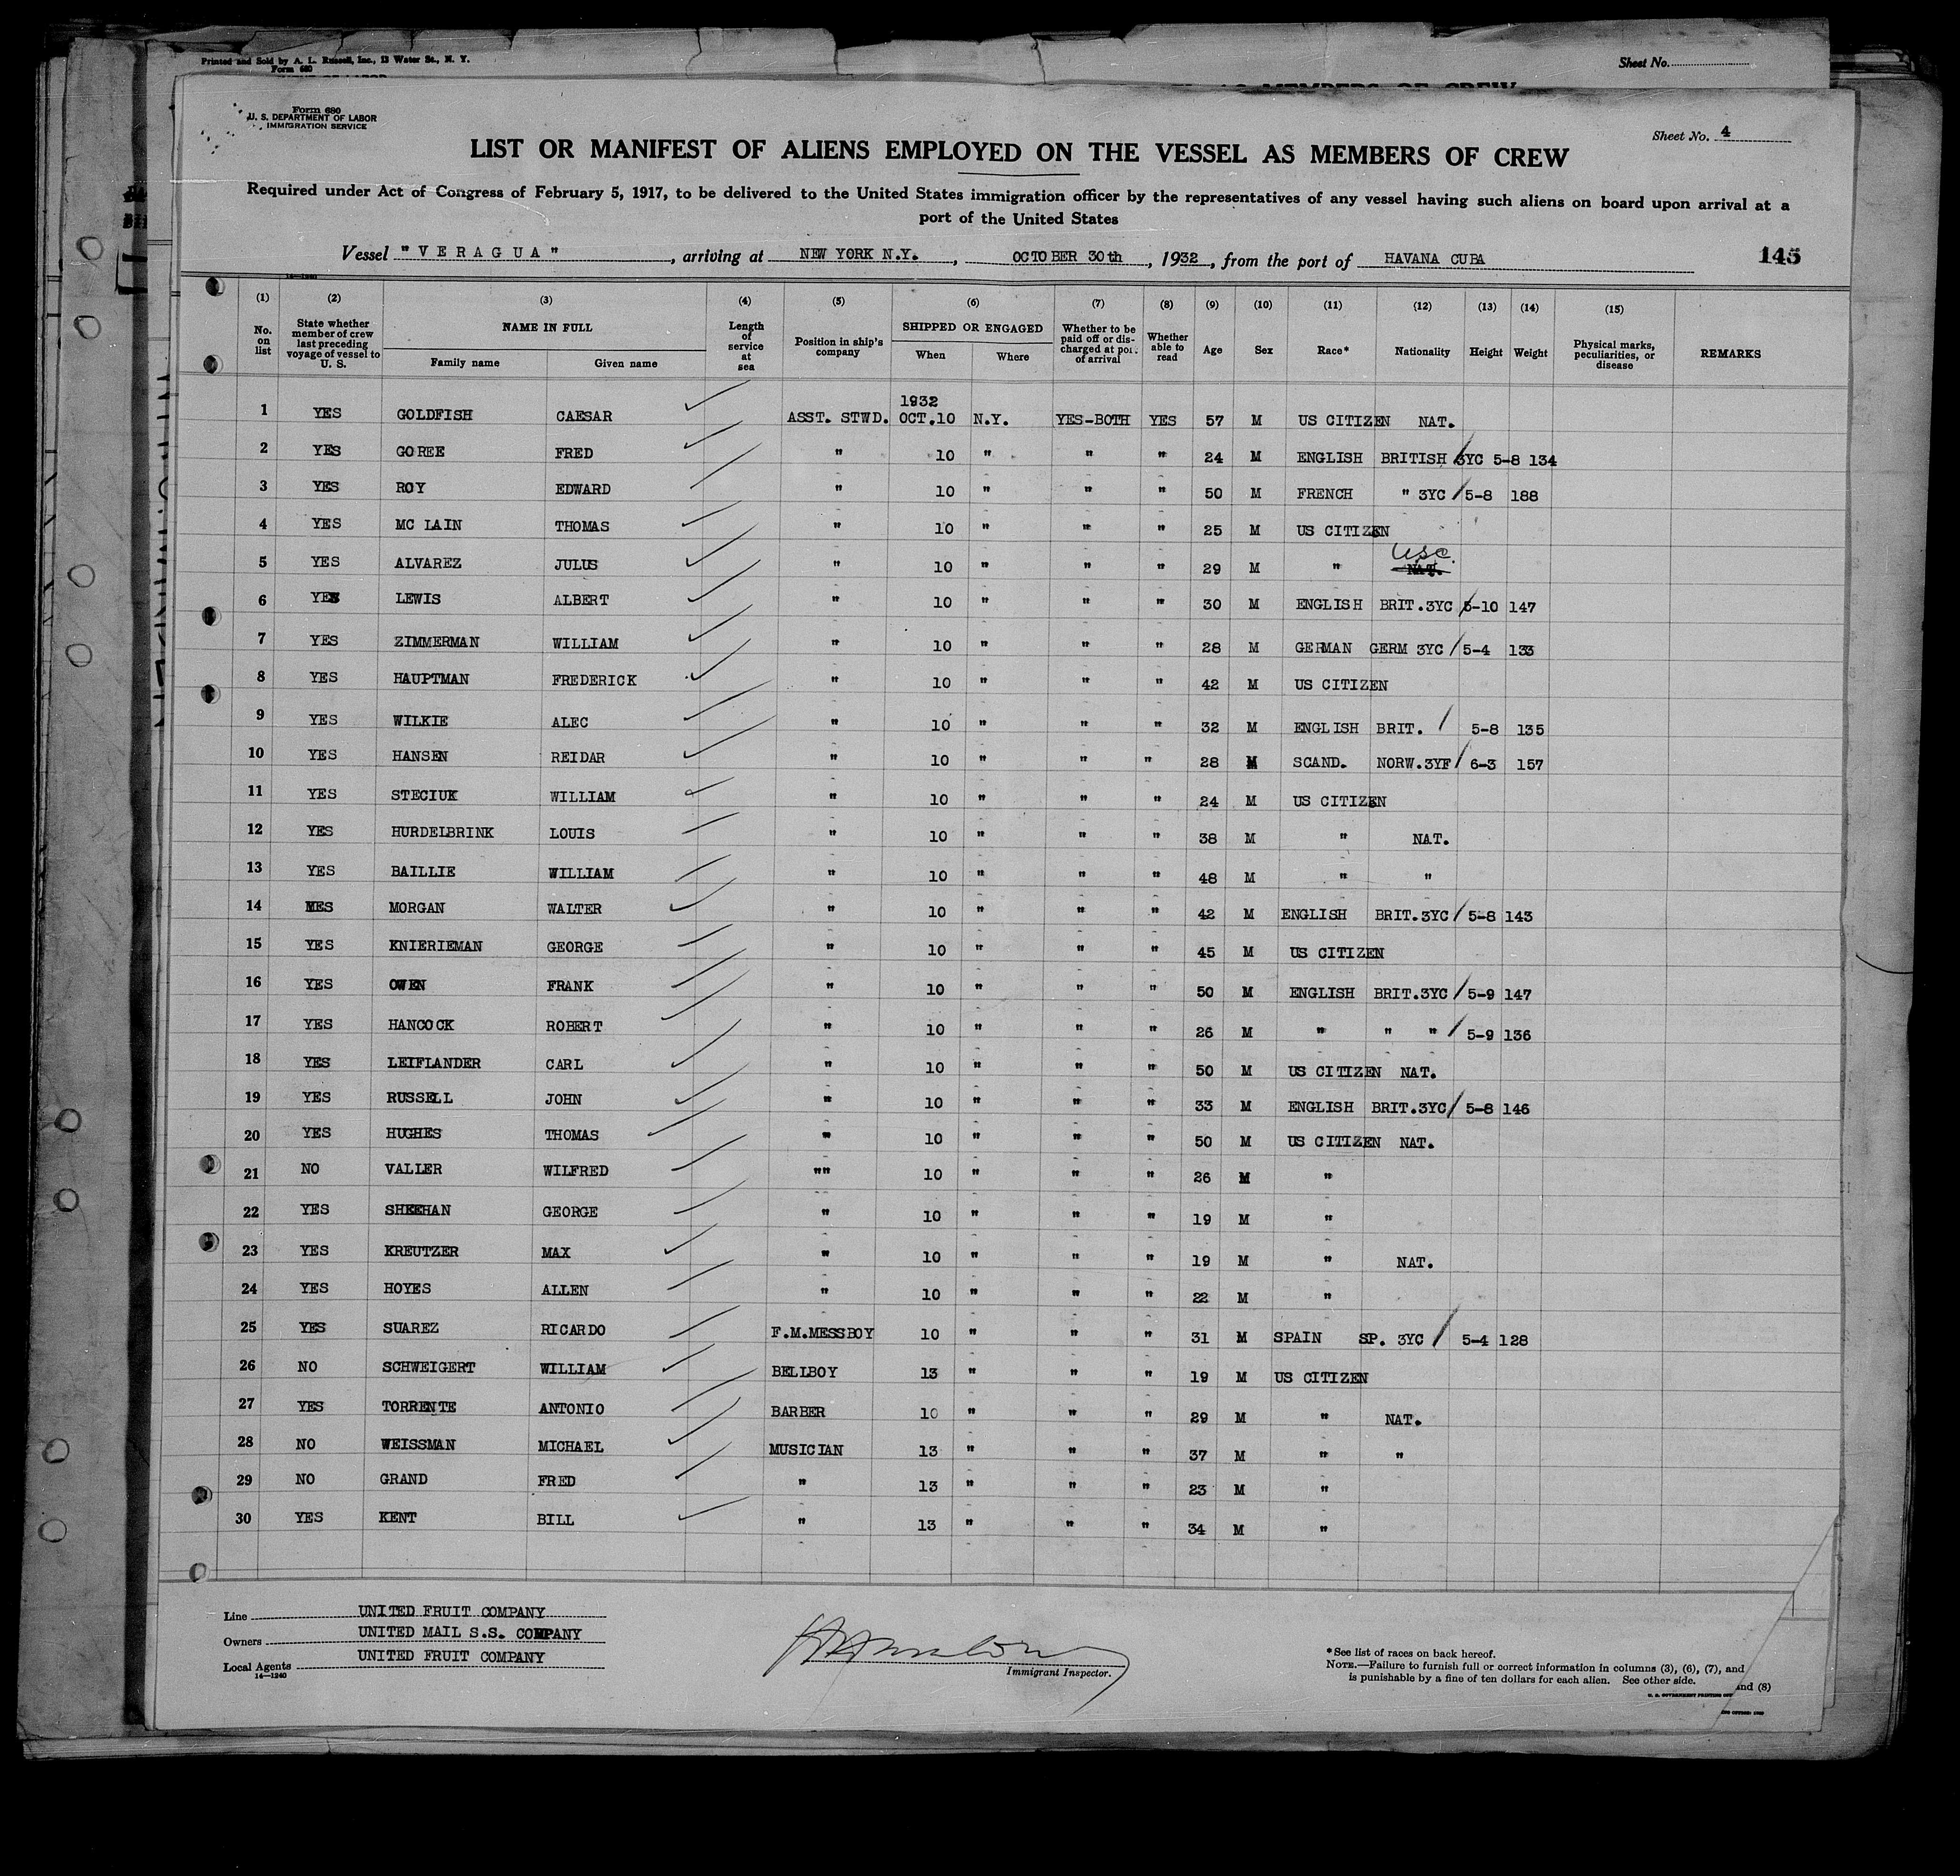 Printed and Sold by A. L. Russell, Inc., 13 Water St., N. Y.
Form 680
Sheet No.
Form 680
U. S. DEPARTMENT OF LABOR
IMMIGRATION SERVICE
Sheet No. 4
LIST OR MANIFEST OF ALIENS EMPLOYED ON THE VESSEL AS MEMBERS OF CREW
Required under Act of Congress of February 5, 1917, to be delivered to the United States immigration officer by the representatives of any vessel having such aliens on board upon arrival at a
port of the United States
Vessel "VERAGUA", arriving at NEW YORK N.Y., OCTOBER 30th, 1932, from the port of HAVANA CUBA 145
(1) (2) (3) (4) (5) (6) (7) (8) (9) (10) (11) (12) (13) (14) (15)
No. on list State whether member of crew last preceding voyage of vessel to U. S. NAME IN FULL Family name Given name Length of service at sea Position in ship's company SHIPPED OR ENGAGED When Where Whether to be paid off or discharged at port of arrival Whether able to read Age Sex Race* Nationality Height Weight Physical marks, peculiarities, or disease REMARKS
1 YES GOLDFISH CAESAR ASST. STWD. 1932 OCT.10 N.Y. YES-BOTH YES 57 M US CITIZEN NAT.
2 YES GOREE FRED " 10 " " " 24 M ENGLISH BRITISH 3YC 5-8 134
3 YES ROY EDWARD " 10 " " " 50 M FRENCH " 3YC 5-8 188
4 YES MC LAIN THOMAS " 10 " " " 25 M US CITIZEN
5 YES ALVAREZ JULUS " 10 " " " 29 M " USC NAT.
6 YES LEWIS ALBERT " 10 " " " 30 M ENGLISH BRIT.3YC 5-10 147
7 YES ZIMMERMAN WILLIAM " 10 " " " 28 M GERMAN GERM 3YC 5-4 133
8 YES HAUPTMAN FREDERICK " 10 " " " 42 M US CITIZEN
9 YES WILKIE ALEC " 10 " " " 32 M ENGLISH BRIT. 5-8 135
10 YES HANSEN REIDAR " 10 " " " 28 M SCAND. NORW.3YF 6-3 157
11 YES STECIUK WILLIAM " 10 " " " 24 M US CITIZEN
12 YES HURDELBRINK LOUIS " 10 " " " 38 M " NAT.
13 YES BAILLIE WILLIAM " 10 " " " 48 M " "
14 YES MORGAN WALTER " 10 " " " 42 M ENGLISH BRIT.3YC 5-8 143
15 YES KNIERIEMAN GEORGE " 10 " " " 45 M US CITIZEN
16 YES OWEN FRANK " 10 " " " 50 M ENGLISH BRIT.3YC 5-9 147
17 YES HANCOCK ROBERT " 10 " " " 26 M " " " 5-9 136
18 YES LEIFLANDER CARL " 10 " " " 50 M US CITIZEN NAT.
19 YES RUSSELL JOHN " 10 " " " 33 M ENGLISH BRIT.3YC 5-8 146
20 YES HUGHES THOMAS " 10 " " " 50 M US CITIZEN NAT.
21 NO VALLER WILFRED "" 10 " " " 26 M "
22 YES SHEEHAN GEORGE " 10 " " " 19 M "
23 YES KREUTZER MAX " 10 " " " 19 M " NAT.
24 YES HOYES ALLEN " 10 " " " 22 M "
25 YES SUAREZ RICARDO F.M.MESSBOY 10 " " " 31 M SPAIN SP. 3YC 5-4 128
26 NO SCHWEIGERT WILLIAM BELLBOY 13 " " " 19 M US CITIZEN
27 YES TORRENTE ANTONIO BARBER 10 " " " 29 M " NAT.
28 NO WEISSMAN MICHAEL MUSICIAN 13 " " " 37 M " "
29 NO GRAND FRED " 13 " " " 23 M "
30 YES KENT BILL " 13 " " " 34 M "
Line UNITED FRUIT COMPANY
Owners UNITED MAIL S.S. COMPANY
Local Agents UNITED FRUIT COMPANY
14—1240
Immigrant Inspector.
*See list of races on back hereof.
NOTE.—Failure to furnish full or correct information in columns (3), (6), (7), and
is punishable by a fine of ten dollars for each alien. See other side.
and (8)